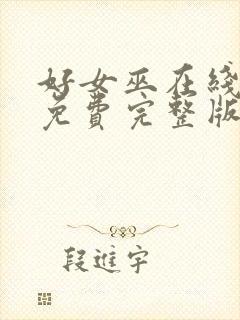 好女巫在线
免费完整版
段進宇